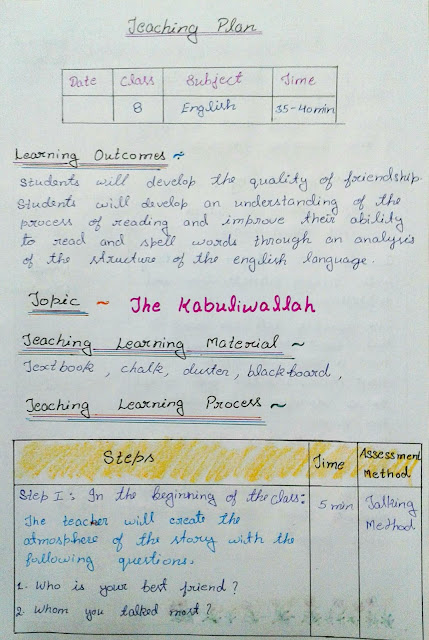 Teaching Plan
Date Class Subject Time
8 English 35-40min
Learning Outcomes ~
Students will develop the quality of friendship.
Students will develop an understanding of the
process of reading and improve their ability
to read and spell words through an analysis
of the structure of the english language.
Topic ~ The Kabuliwallah
Teaching Learning Material ~
Textbook, chalk, duster, blackboard,
Teaching Learning Process ~
Steps Time Assessment
Method
Step I: In the beginning of the class: 5 min Talking
Method
The teacher will create the
atmosphere of the story with the
following questions.
1. Who is your best friend?
2. Whom you talked most?